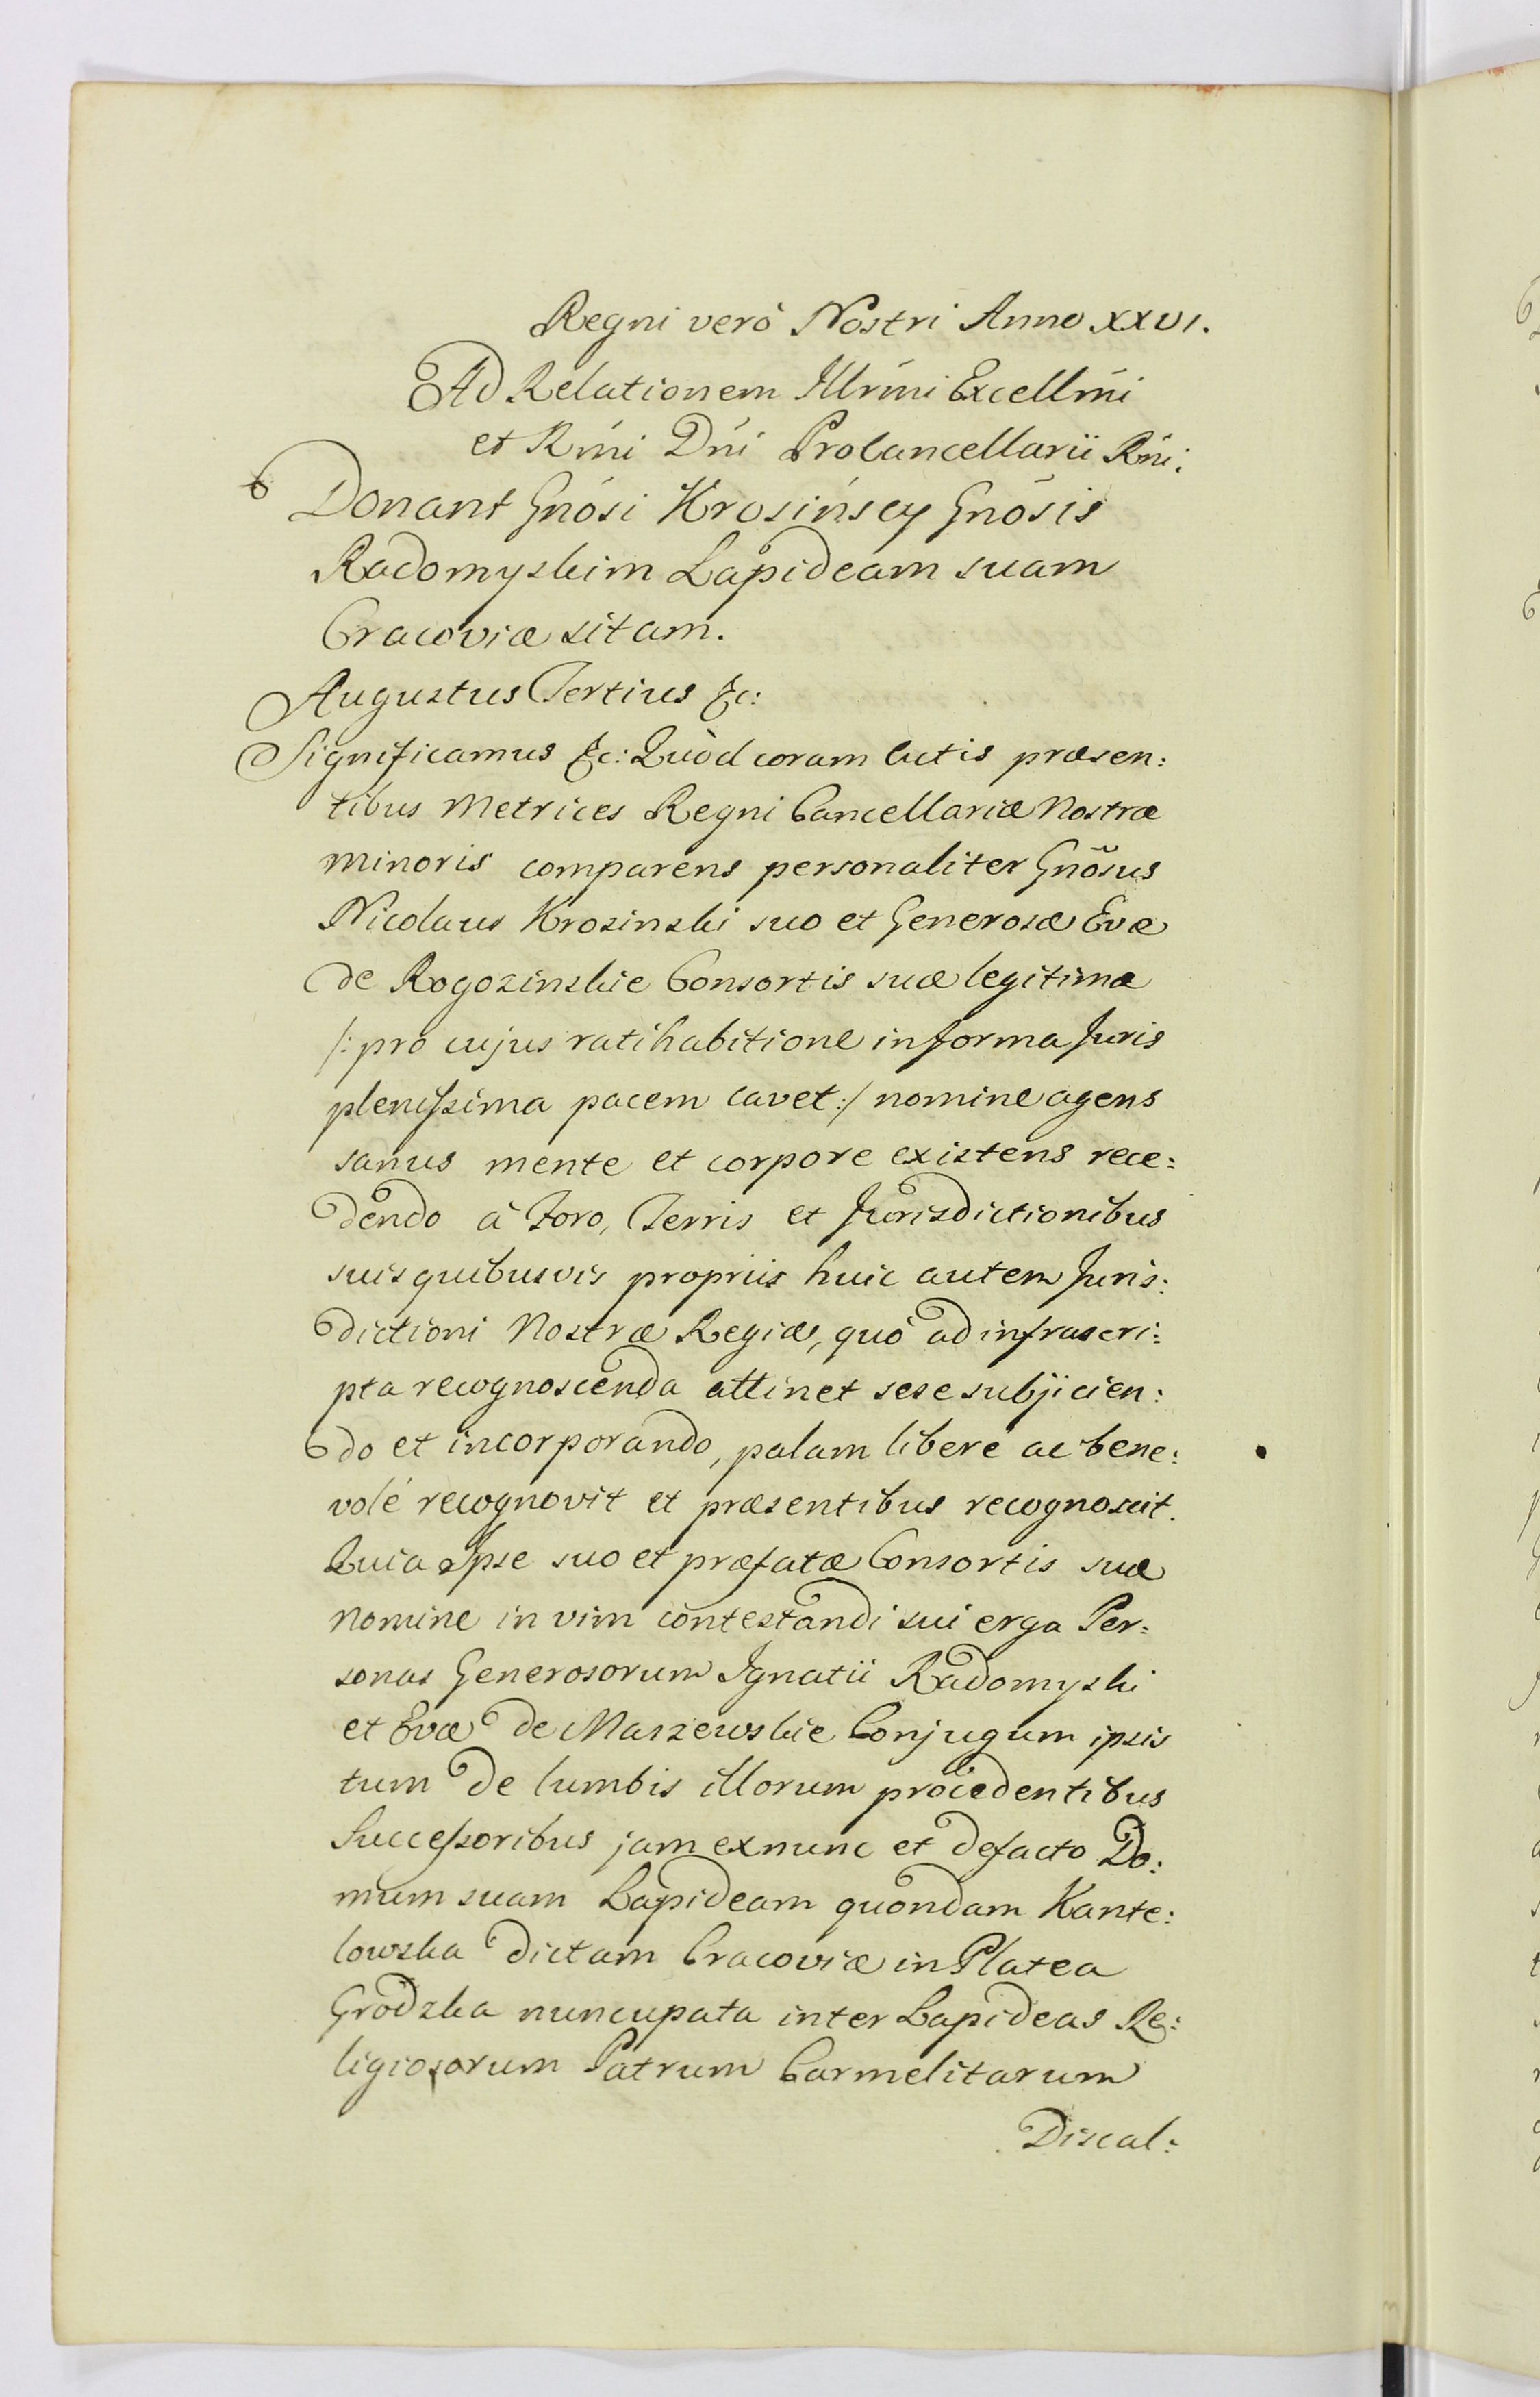 Regni verò Nostri Anno XXVI.
Ad Relationem Illrm̄i Excellm̄i
et Rm̄i Dn̄i Procancellarii Rn̄i.
Donant Gnōsi Krosińscy Gnōsis
Radomyskim Lapideam suam
Cracoviæ sitam.
Augustus Tertius &c:
Significamus &c: Quòd coram Actis præsen:
tibus Metrices Regni Cancellariæ Nostræ
Minoris comparens personaliter Gnōsus
Nicolaus Krosinski suo et Generosæ Evæ
de Rogozinskie Consortis suæ legitimæ
/: pro cujus ratihabitione in forma Juris
plenissima pacem cavet :/ nomine agens
sanus mente et corpore existens rece:
dendo à Foro, Terris et Jurisdictionibus
suis quibusvis propriis huic autem Juris:
dictioni Nostræ Regiæ, quò ad infrascri:
pta recognoscenda attinet sese subjicien:
do et incorporando, palam libere ac bene:
volè recognovit et præsentibus recognoscit.
Quia Ipse suo et præfatæ Consortis suæ
Nomine in vim contestandi sui erga Per:
sonas Generosorum Ignatii Radomyski
et Evæ de Maszewskie Conjugum ipsis
tum de lumbis illorum procedentibus
Successoribus jam exnunc et defacto Do:
mum suam Lapideam quondam Kante:
lowska dictam Cracoviæ in Platea
Grodzka nuncupata inter Lapideas Re:
ligiosorum Patrum Carmelitarum
Discal: